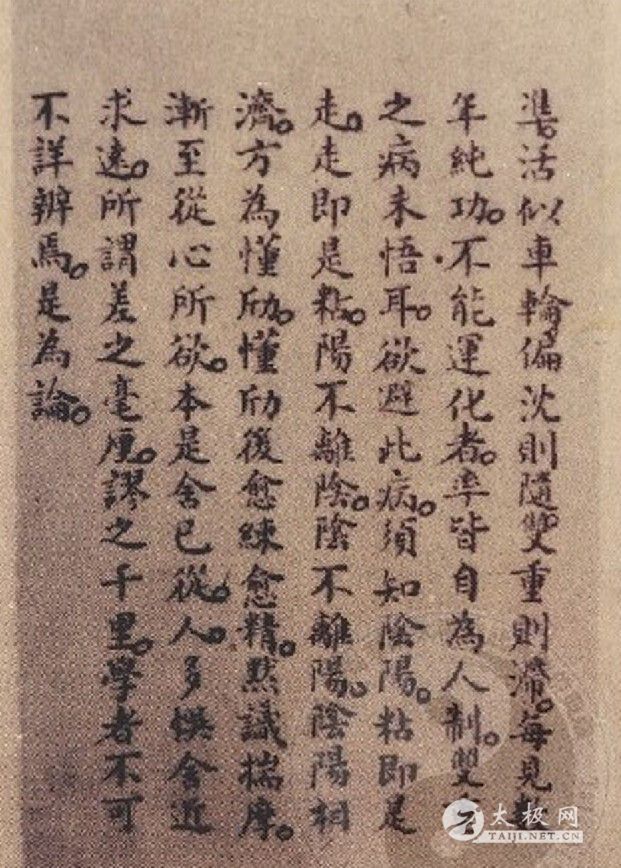 凖。活似車輪。偏沈則隨。雙重則滯。每見
年純功。不能運化者。率皆自為人制。雙
之病未悟耳。欲避此病。須知陰陽。粘即是
走。走即是粘。陽不離陰。陰不離陽。陰陽相
濟。方為懂劤。懂劤後愈練愈精。默識揣摩。
漸至從心所欲。本是舍己從。人。多悞舍近
求遠。所謂差之毫厘。謬之千里。學者不可
不詳辨焉。是為論。
太极网
TAIJI.NET.CN